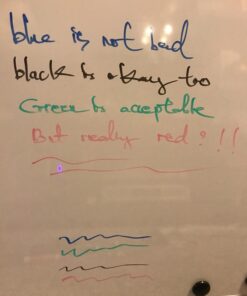 blue is not bad
black is okay too
Green is acceptable
But really red?!!!